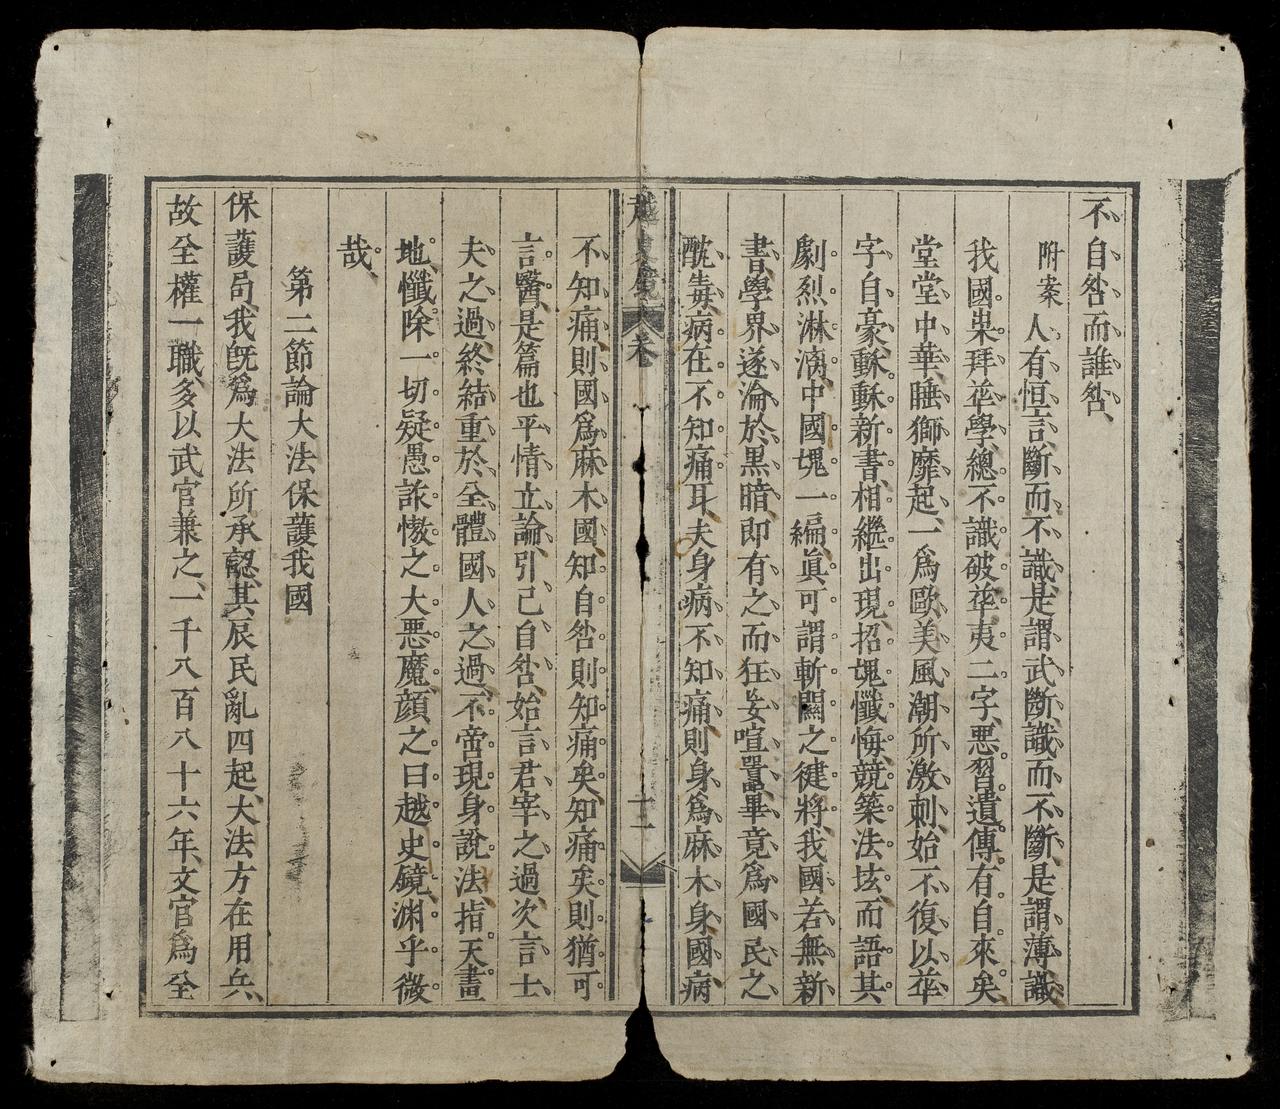 不自咎而誰咎
附案人有恒言斷而不識是謂武斷識而不斷是謂薄識
我國崇拜華學總不識破華夷二字惡習遺傳有自來矣
堂堂中華睡獅靡起一爲歐美風潮所激刺始不復以華
字自豪穌穌新書相繼出現招塊懺悔競築法垓而語其
劇烈淋漓中國塊一編眞可謂斬關之徤將我國若無新
書學界遂淪於黑暗即有之而狂妄喧囂畢竟爲國民之
酖毒病在不知痛耳夫身病不知痛則身爲麻木身國病
越史鏡 卷
十二
不知痛則國爲麻木國知自咎則知痛矣知痛矣則猶可
言醫是篇也平情立論引己自咎始言君宰之過次言士
夫之過終結重於全體國人之過不啻現身說法指天畫
地懺除一切疑愚詐慠之大惡魔顏之曰越史鏡渊乎微
哉
第二節論大法保護我國
保護局我旣爲大法所承認其辰民亂四起大法方在用兵
故全權一職多以武官兼之一千八百八十六年文官爲全